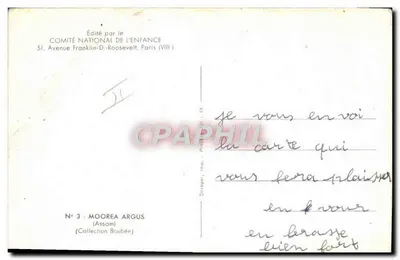 Édité par le
COMITÉ NATIONAL DE L'ENFANCE
51, Avenue Franklin-D.-Roosevelt, Paris (VIIIe)
II
Cartes-Postales
N° 3 - MOOREA ARGUS
(Assam)
(Collection Boubée)
je vous en voi
la carte qui
vous fera plaisser
en vour
en brasse
bien fort